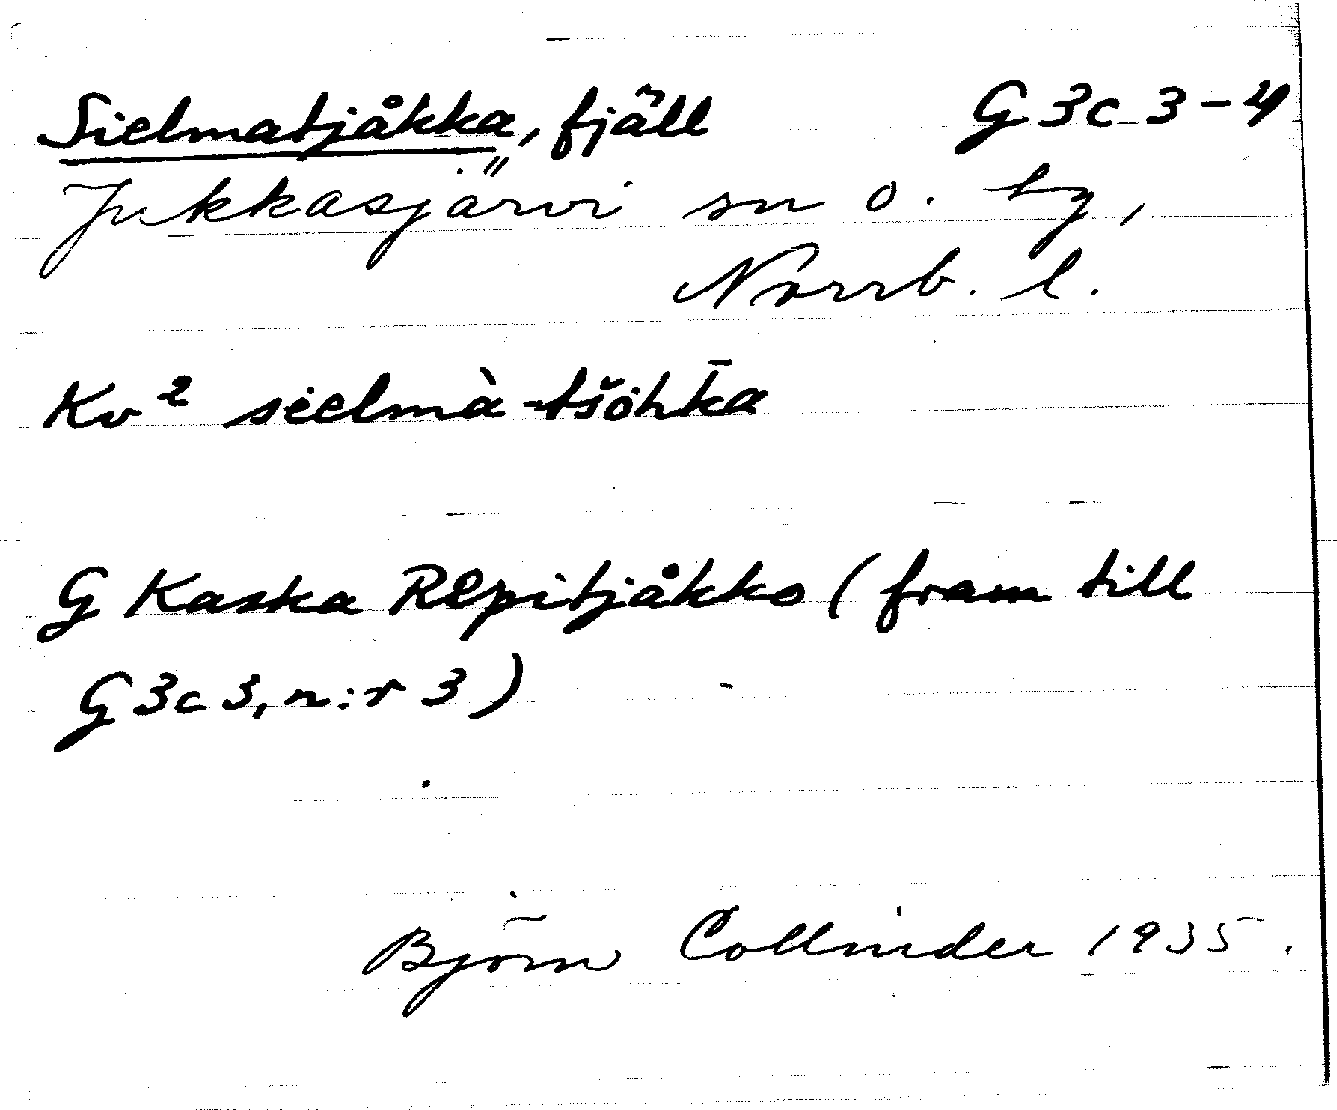 Sielmatjåkka, fjäll G3c 3-4
Jukkasjärvi sn o. tg,
Norrb. l.
Kv² sielmà-tšŏhk̄a
G Kaska Repitjåkko (fram till
G3c 3, n:r 3)
Björn Collinder 1935.